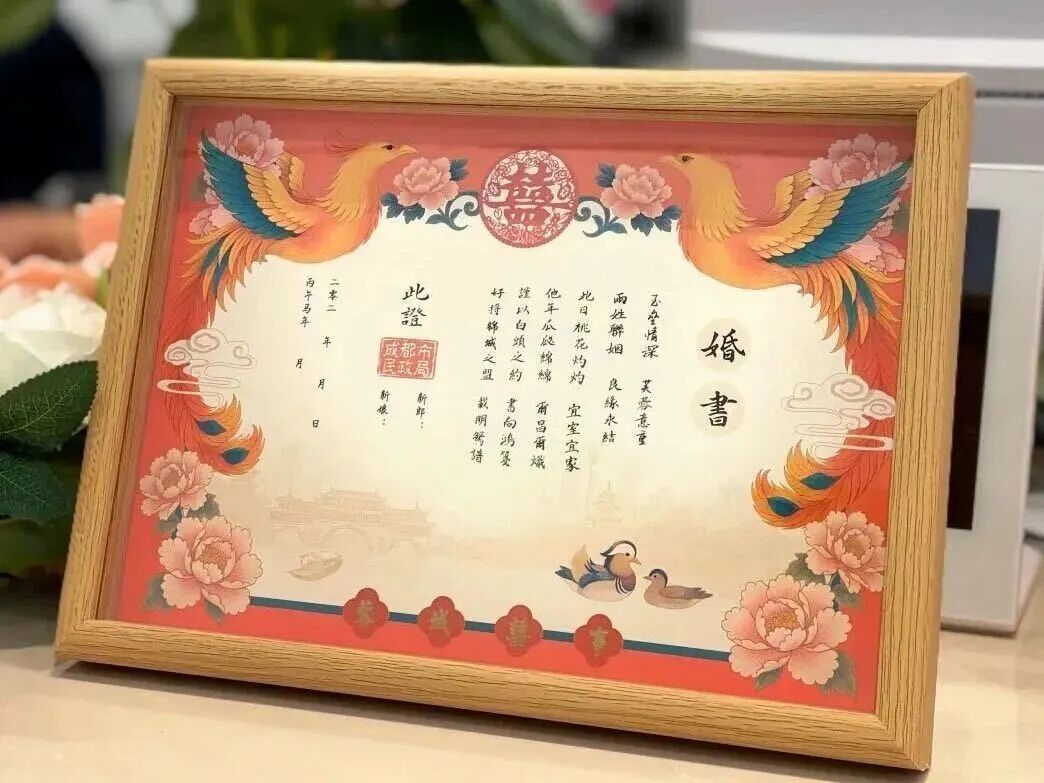 婚書
玉壘情深 芙蓉意重
兩姓聯姻 良緣永結
此日桃花灼灼 宜室宜家
他年瓜瓞綿綿 爾昌爾熾
謹以白頭之約 書向鴻箋
好將錦城之盟 載明鴛譜
此證
成都市
民政局
新郎：
新娘：
二零二 年 月 日
丙午马年 月
蓉城囍事